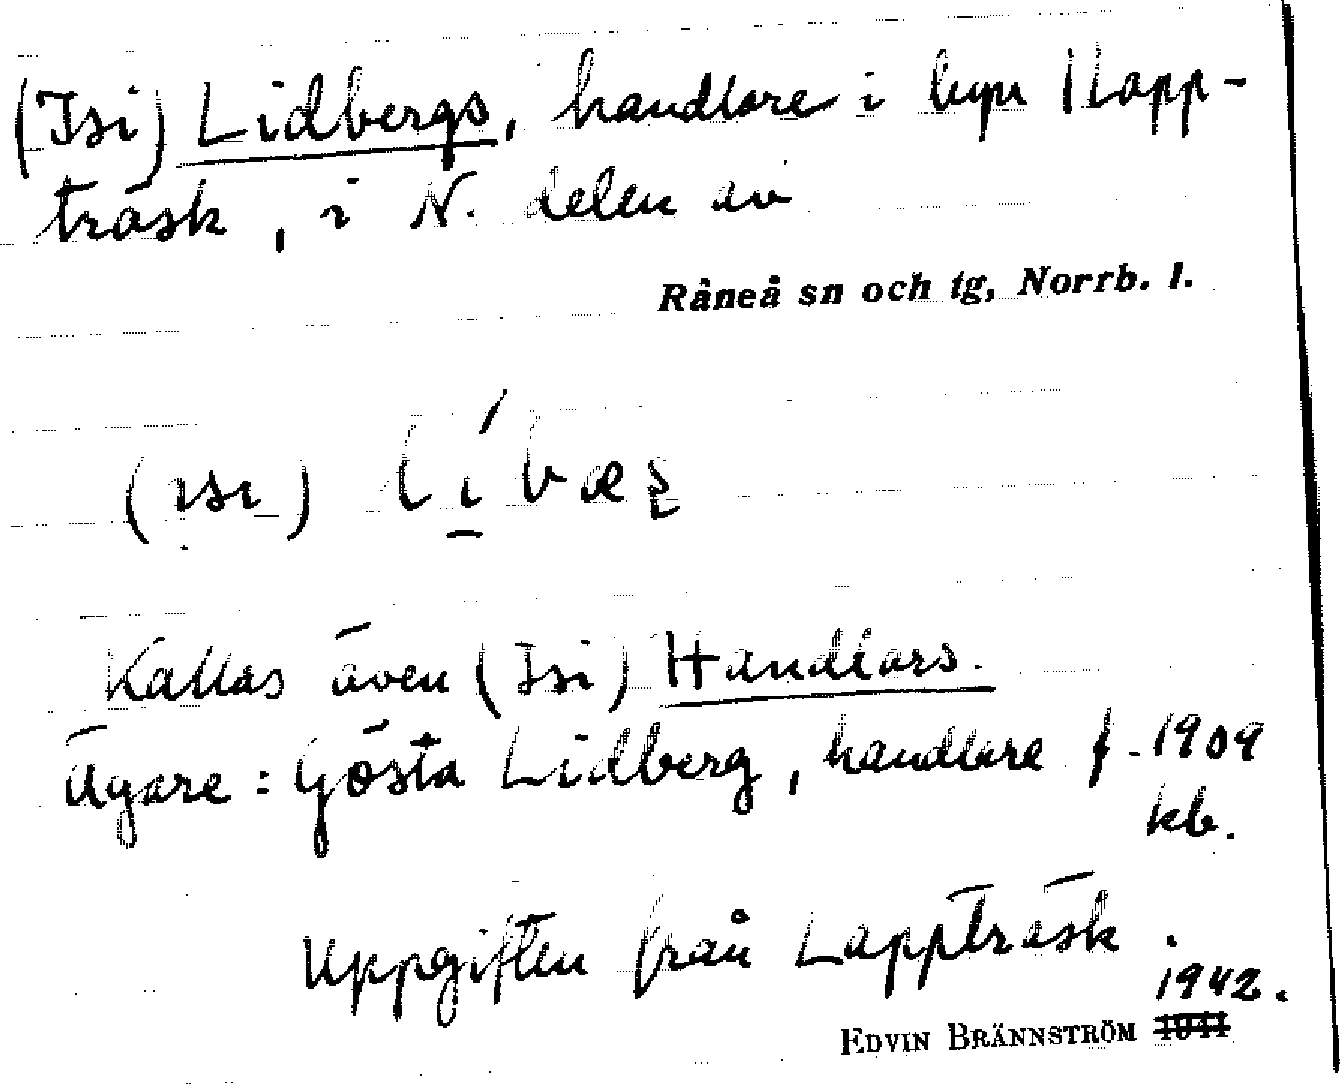 (Isi) Lidbergs, handlare i byn Lapp-
träsk, i N. delen av
Råneå sn och tg, Norrb. l.
(ısı)
Kallas även (Isi) Handlars.
Ägare: Gösta Lidberg, handlare f. 1909
kb.
Uppgiften från Lappträsk.
1942.
EDVIN BRÄNNSTRÖM 1941